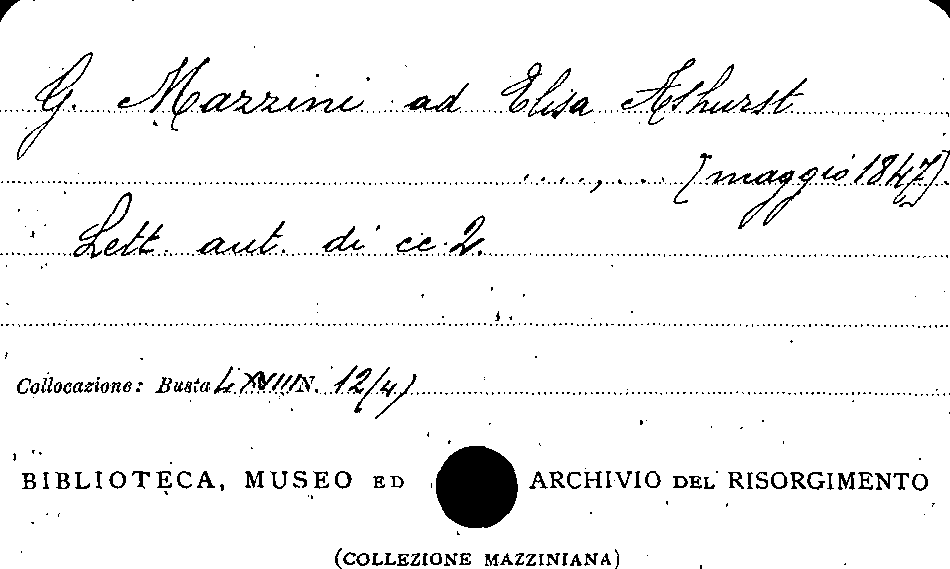 G. Mazzini ad Elisa Ashurst
....,... [maggio 1847].
Lett. aut. di cc. 2.
Collocazione: Busta LXVIII N. 12/4)
BIBLIOTECA, MUSEO ED ARCHIVIO DEL RISORGIMENTO
(COLLEZIONE MAZZINIANA)